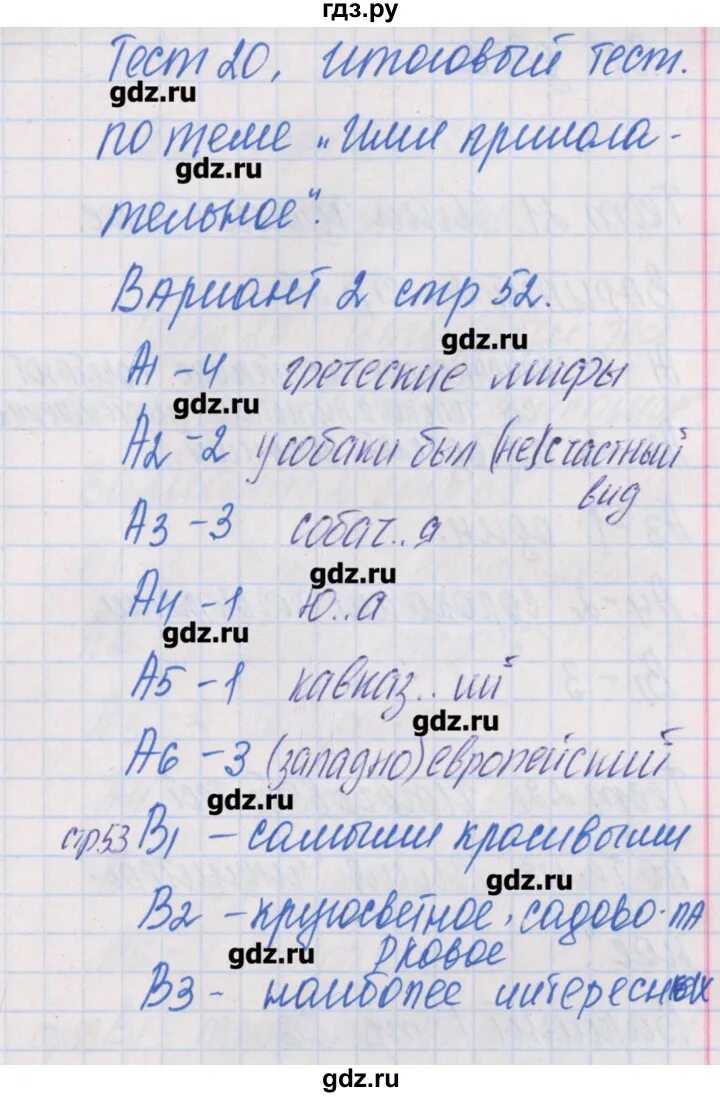 гдз.ру
Тест 20, итоговый тест.
gdz.ru
по теме „Имя прилага-
gdz.ru
тельное".
Вариант 2 стр 52.
gdz.ru
А1 - 4 греческие мифы
gdz.ru
А2 - 2 у собаки был (не)счастный
вид
А3 - 3 собач..я
gdz.ru
А4 - 1 ю..а
gdz.ru
А5 - 1 кавказ..ий
gdz.ru
А6 - 3 (западно)европейский
gdz.ru
стр.53 В1 - самыми красивыми
gdz.ru
В2 - кругосветное, садово-па
рковое
gdz.ru
В3 - наиболее интересных
gdz.ru